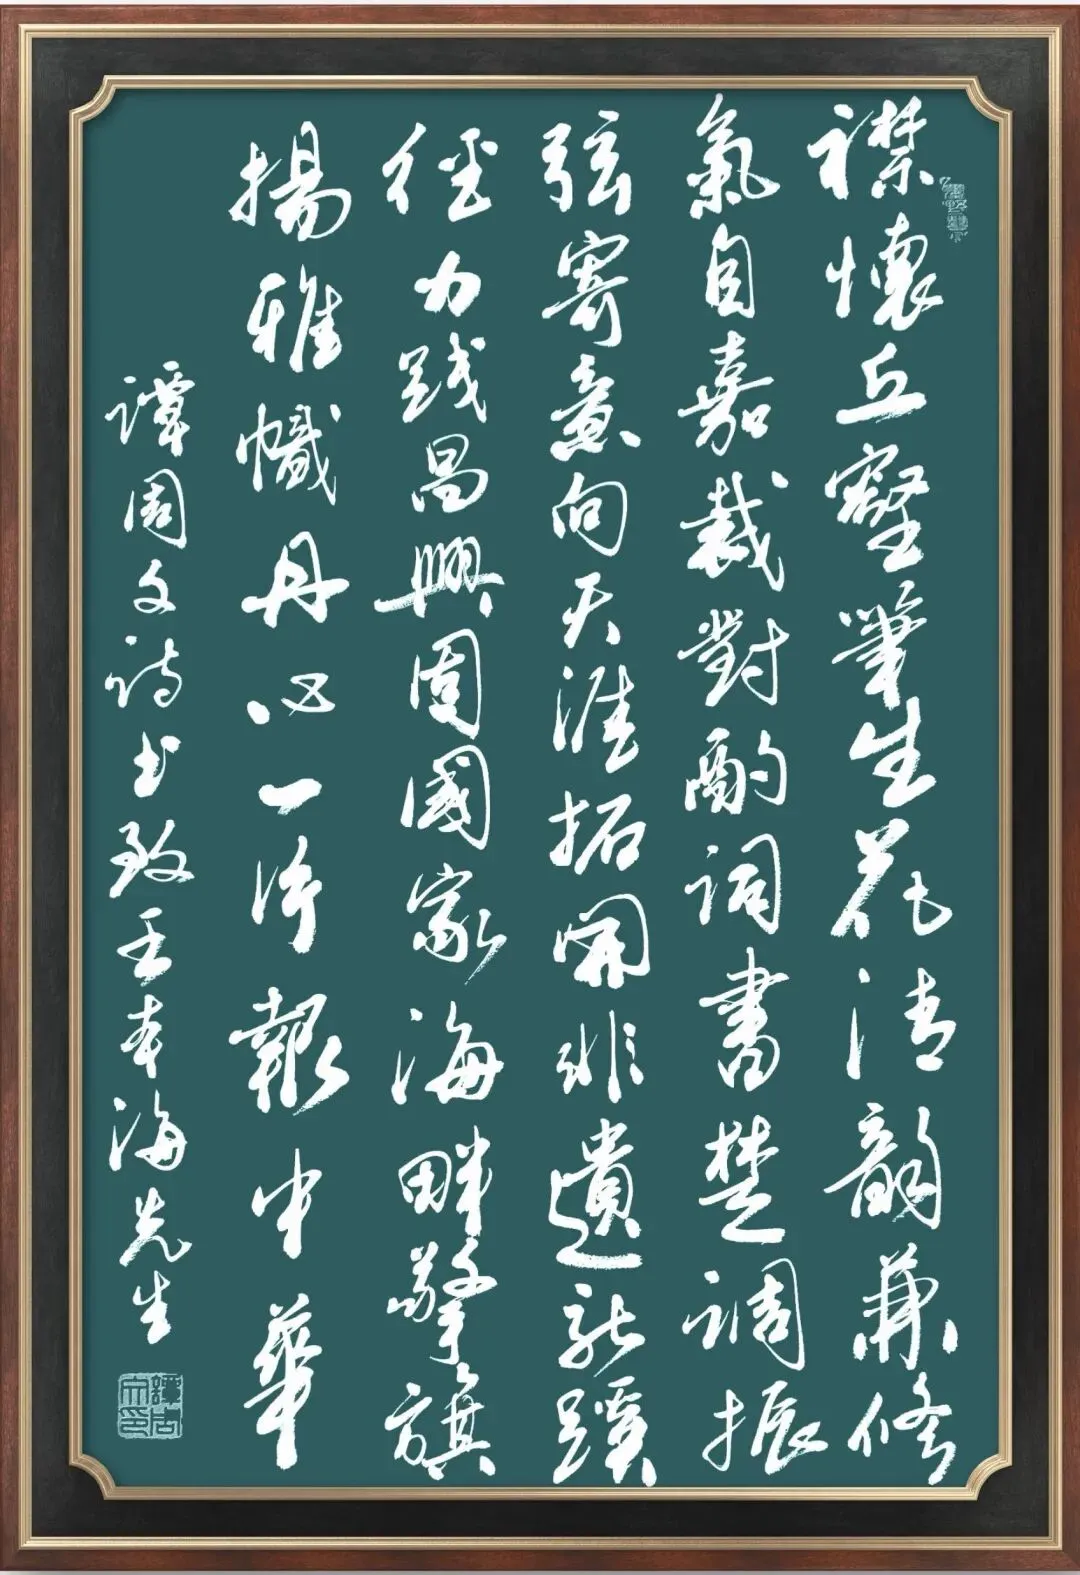 襟懷丘壑筆生花清韻兼修
氣自嘉裁對酌詞書楚調振
弦寄意向天涯拓開非遺新蹊
徑力踐昌興固國家海畔擎旗
揚雅幟丹心一片報中華
谭周文诗书致王本海先生
譚周文印